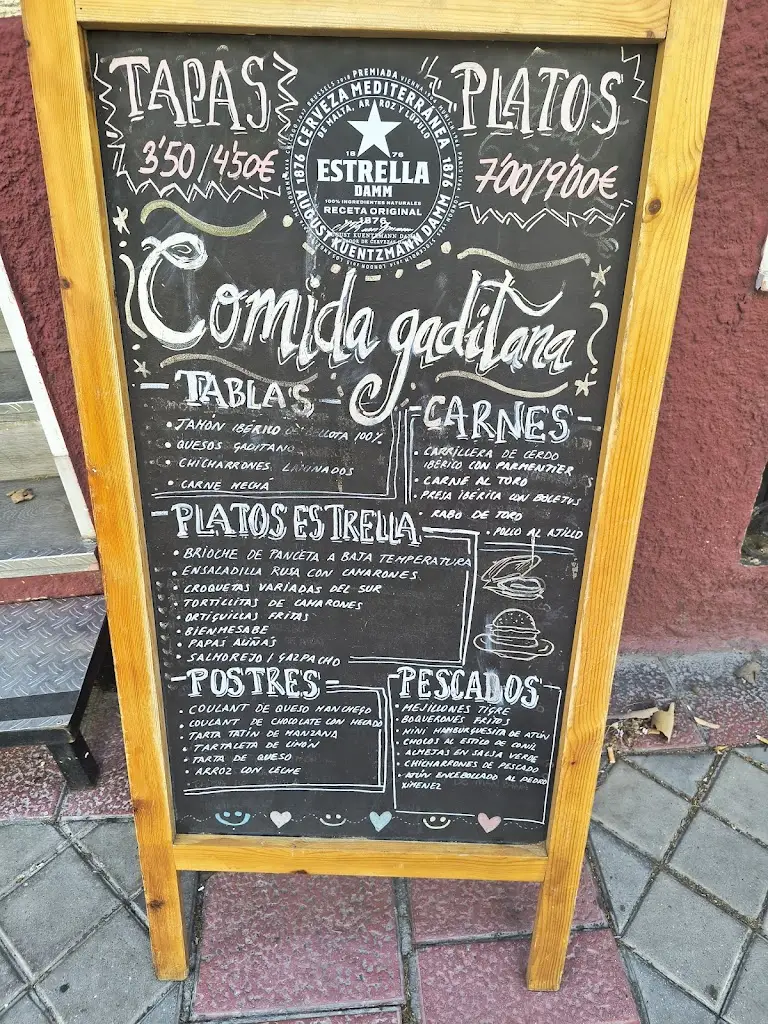 TAPAS
3'50/4'50€
PREMIADA
CERVEZA MEDITERRÁNEA
DE MALTA, ARROZ Y LÚPULO
1876
1876
1876
ESTRELLA
DAMM
100% INGREDIENTES NATURALES
RECETA ORIGINAL
1876
AUGUST KUENTZMANN DAMM
PLATOS
7'00/9'00€
Comida gaditana
TABLAS
• JAMÓN IBÉRICO DE BELLOTA 100%
• QUESOS GADITANO
• CHICHARRONES LAMINADOS
• CARNE MECHÁ
CARNES
• CARRILLERA DE CERDO
IBÉRICO CON PARMENTIER
• CARNE AL TORO
• PRESA IBÉRICA CON BOLETUS
• RABO DE TORO
• POLLO AL AJILLO
PLATOS ESTRELLA
• BRIOCHE DE PANCETA A BAJA TEMPERATURA
• ENSALADILLA RUSA CON CAMARONES
• CROQUETAS VARIADAS DEL SUR
• TORTILLITAS DE CAMARONES
• ORTIGUILLAS FRITAS
• BIENMESABE
• PAPAS ALIÑÁS
• SALMOREJO / GAZPACHO
POSTRES
• COULANT DE QUESO MANCHEGO
• COULANT DE CHOCOLATE CON HELADO
• TARTA TATÍN DE MANZANA
• TARTALETA DE LIMÓN
• TARTA DE QUESO
• ARROZ CON LECHE
PESCADOS
• MEJILLONES TIGRE
• BOQUERONES FRITOS
• MINI HAMBURGUESITA DE ATÚN
• CHOCOS AL ESTILO DE CONIL
• ALMEJAS EN SALSA VERDE
• CHICHARRONES DE PESCADO
• ATÚN ENCEBOLLADO AL PEDRO
XIMENEZ